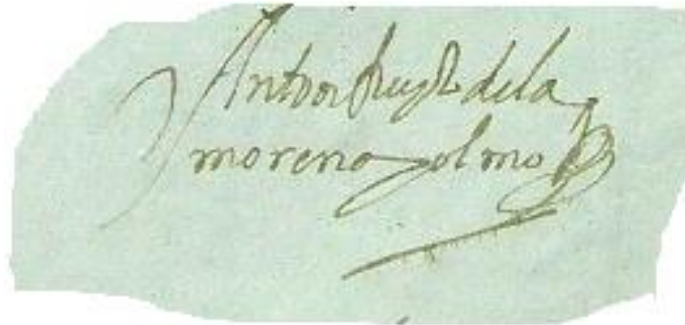 Anton Ruyz dela
moreno y olmo